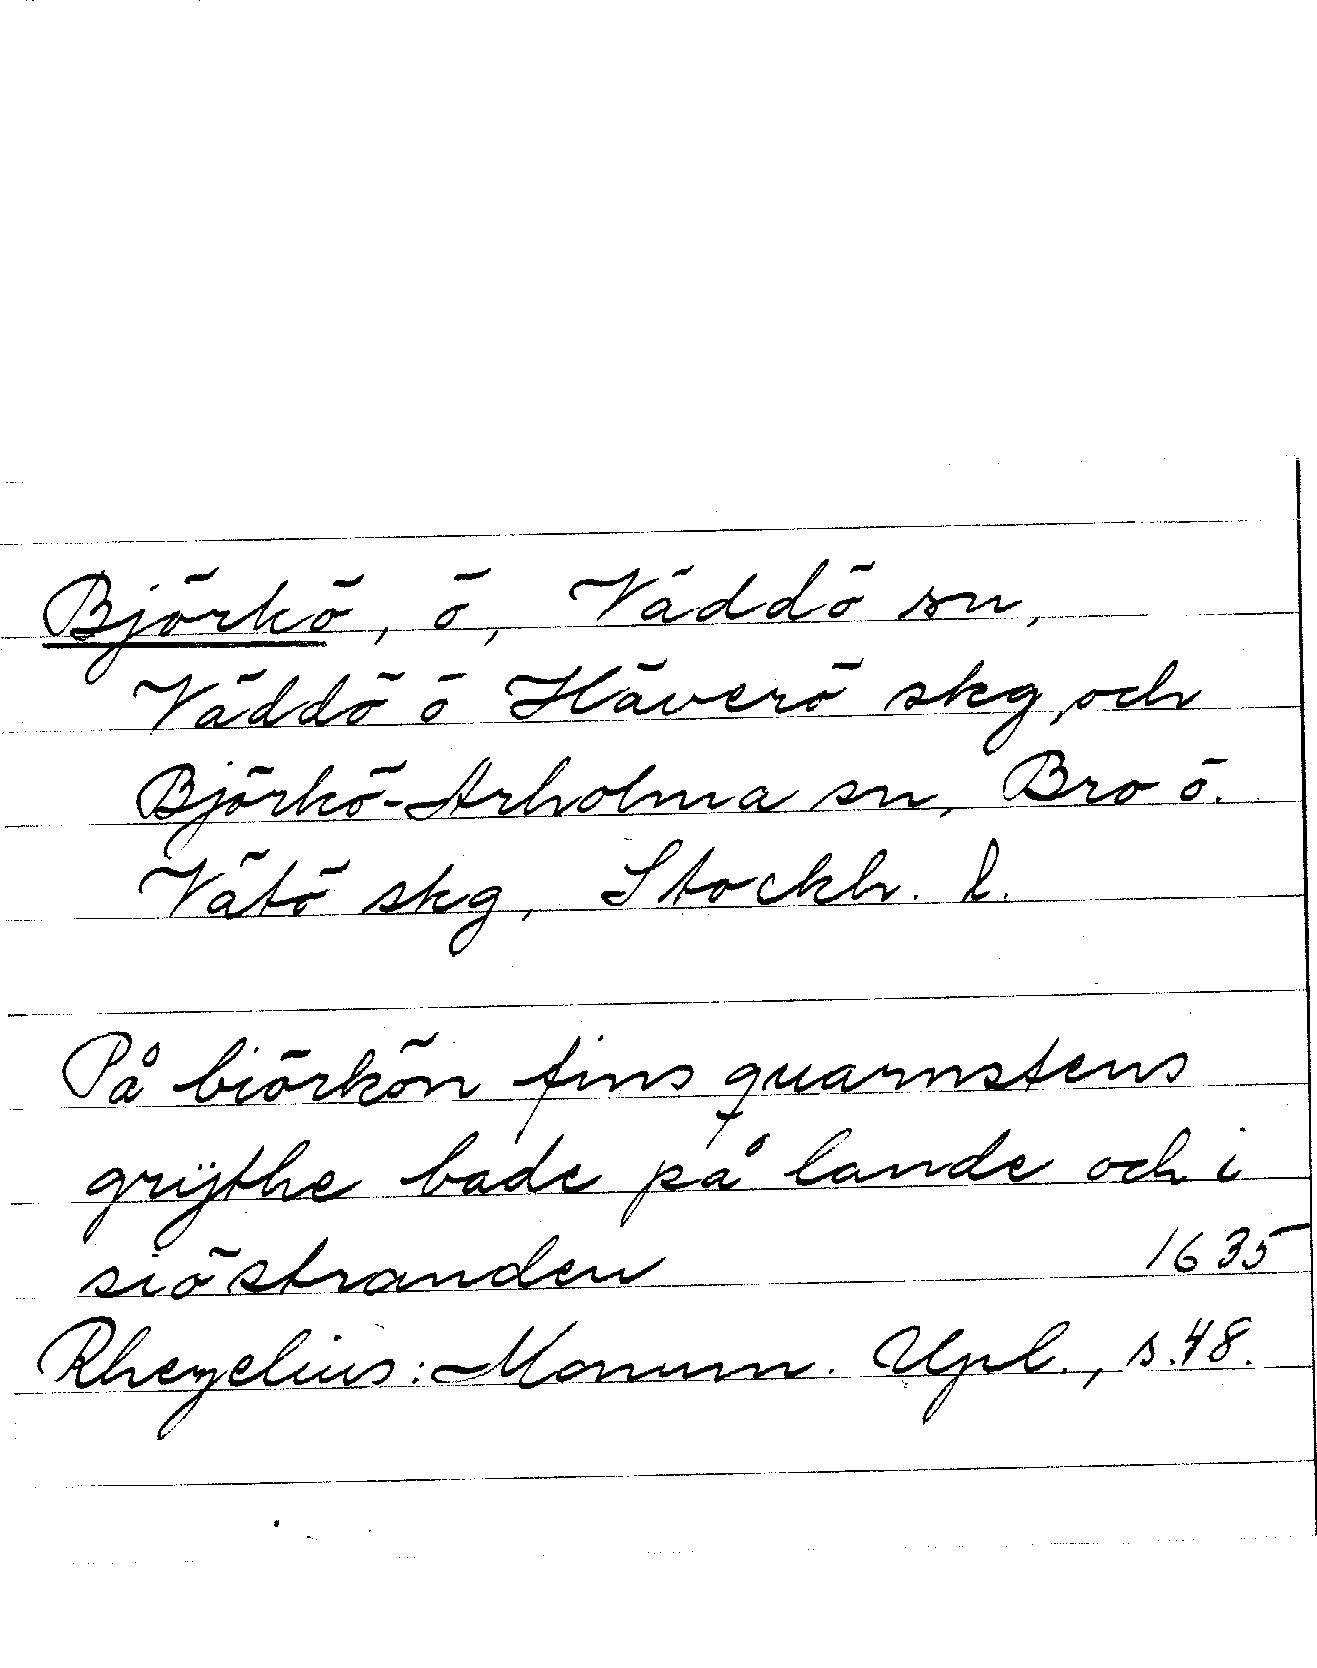 Björkö, ö, Väddö sn,
Väddö ö Häverö skg, och
Björkö-Arholma sn, Bro ö.
Vätö skg, Stockh. l.
På biörkön fins quarnstens
grÿthe bade på lande och i
siöstranden 1635
Rhezelius: Monum. Upl., s. 48.